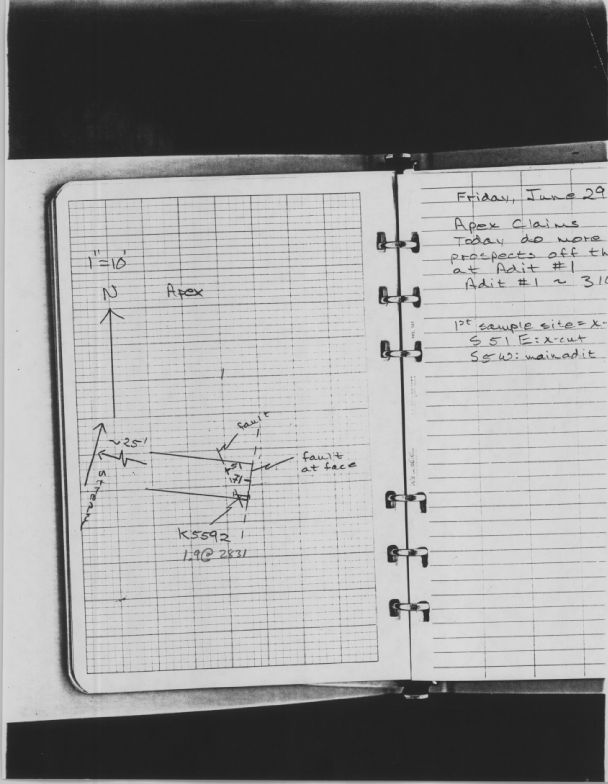 1"=10'
N
Apex
fault
~25'
fault
at face
71
stream
K5592
1.9@2831
Friday, June 29
Apex Claims
Today do more
prospects off th
at Adit #1
Adit #1 ~ 310
1st sample site = x-
S 51 E: x-cut
S 5 W: main adit